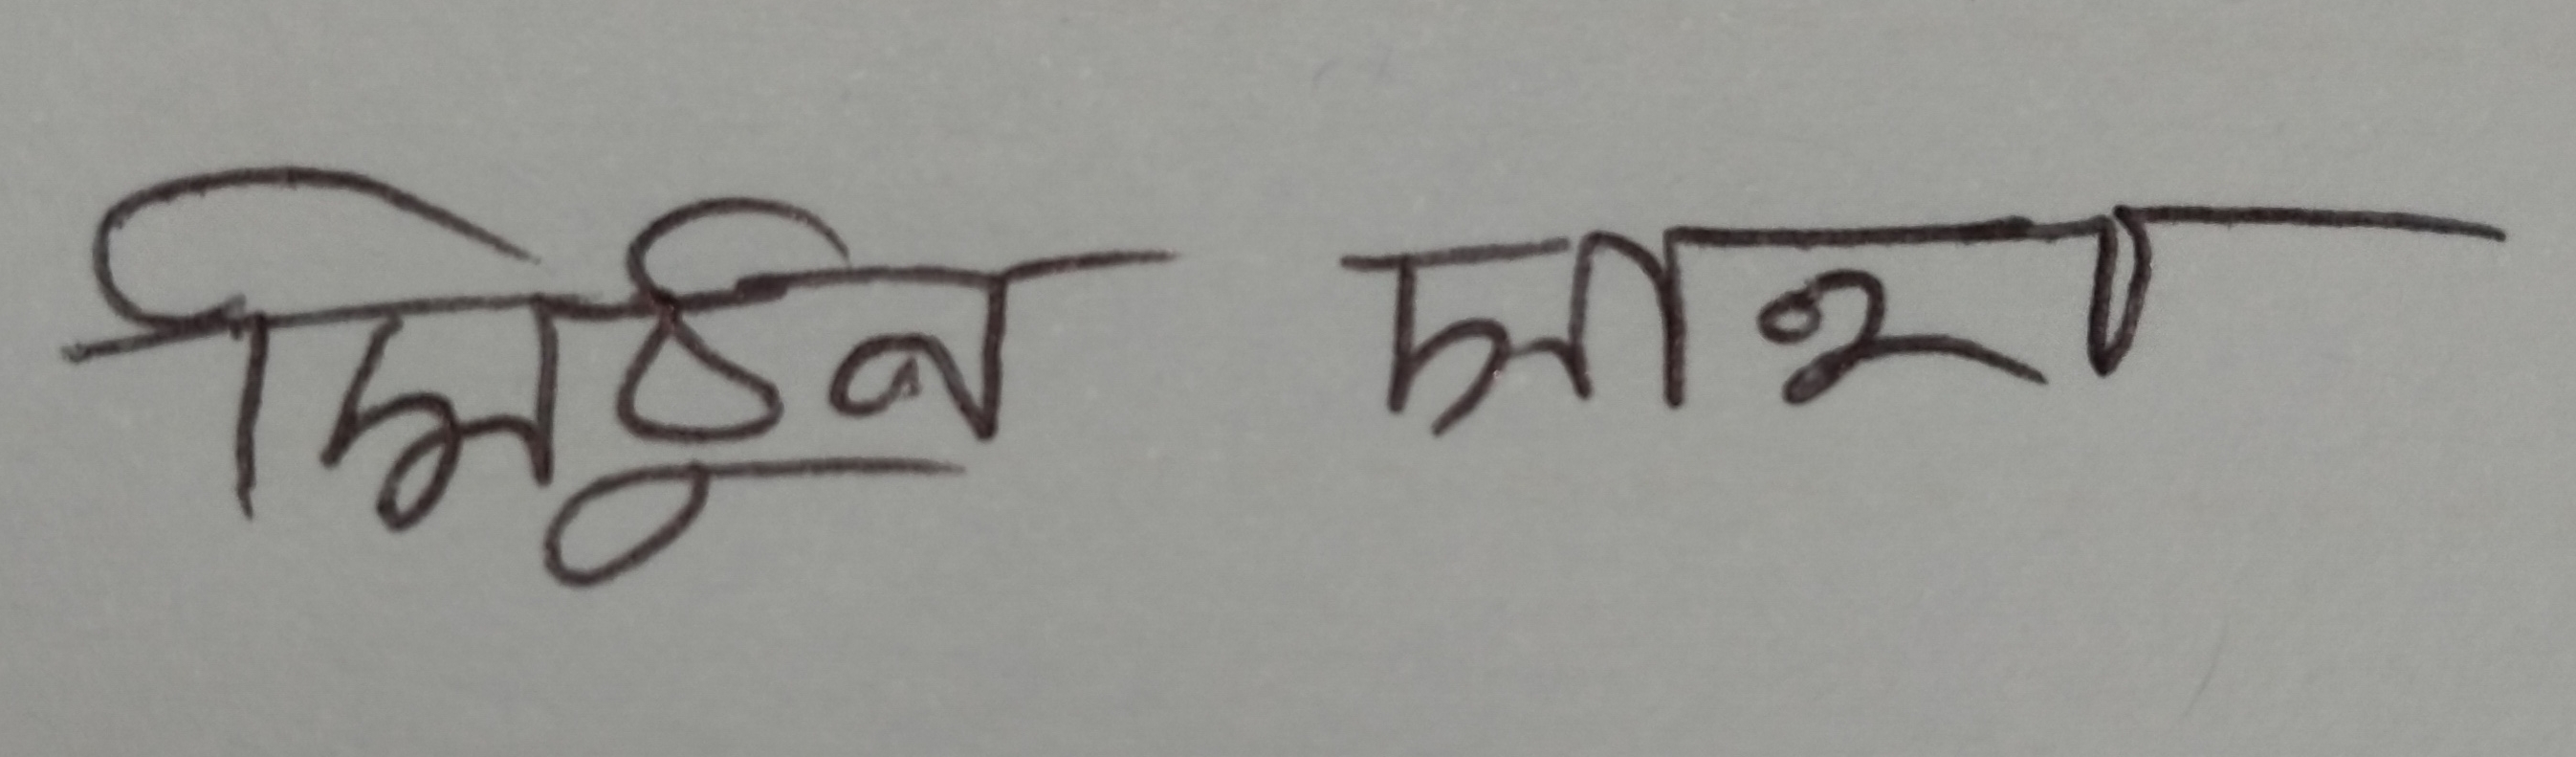 মিঠুন সাহা